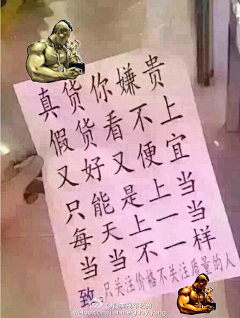 真货你嫌贵
假货看不上
又好又便宜
只能是上当
每天上一当
当当不一样
致：只关注价格不关注质量的人